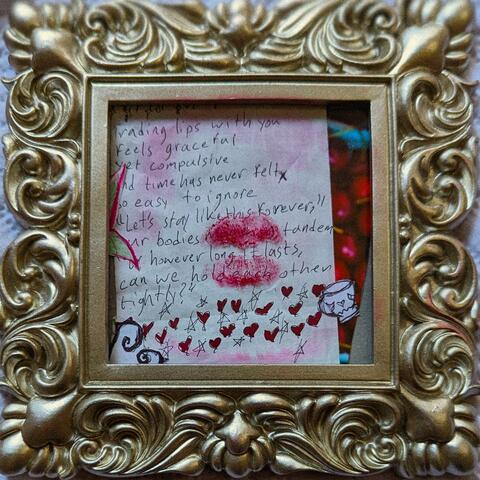 trading lips with you
feels graceful
yet compulsive
and time has never felt
so easy to ignore
"Let's stay like this forever,"
our bodies tandem
for however long it lasts,
can we hold each other
tightly?"